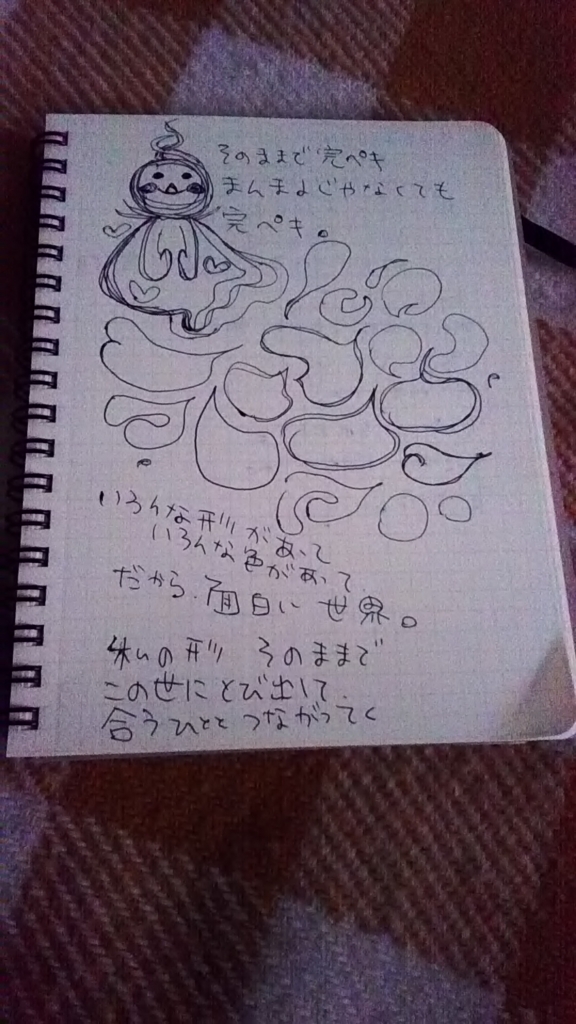 そのままで完ペキ
まんまよじゃなくても
完ペキ。
いろんな形があって
いろんな色があって
だから、面白い世界。
私の形 そのままで
この世にとび出して、
合うひととつながってく